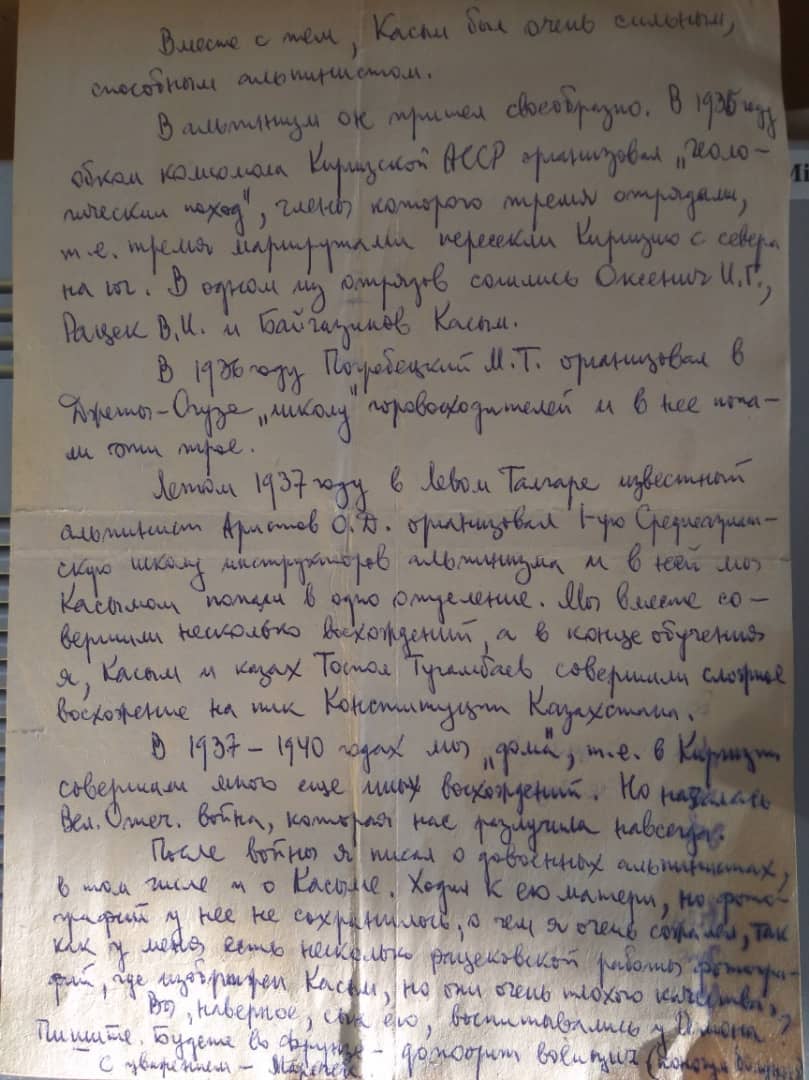 Вместе с тем, Касым был очень сильным,
способным альпинистом.
В альпинизм он пришел своеобразно. В 1935 году
обком комсомола Киргизской АССР организовал „геоло-
гический поход", члены которого тремя отрядами,
т.е. тремя маршрутами пересекли Киргизию с севера
на юг. В одном из отрядов сошлись Оксенич И.Г.,
Рацек В.И. и Байгазинов Касым.
В 1936 году Погребецкий М.Т. организовал в
Джеты-Огузе „школу" горовосходителей и в нее попа-
ли эти трое.
Летом 1937 году в Левом Талгаре известный
альпинист Аристов О.Д. организовал 1-ую Среднеазиат-
скую школу инструкторов альпинизма и в ней мы
Касымом попали в одно отделение. Мы вместе со-
вершили несколько восхождений, а в конце обучения
я, Касым и казах Тоспол Тугамбаев совершили сложное
восхожение на пик Конституции Казахстана.
В 1937-1940 годах мы „дома", т.е. в Киргизии
совершили много еще иных восхождений. Но началась
Вел. Отеч. война, которая нас разлучила навсегда.
После войны я писал о довоенных альпинистах,
в том числе и о Касыме. Ходил к его матери, но фото-
графий у нее не сохранилось, о чем я очень сожалел, так
как у меня есть несколько рацековской работы фотогра-
фий, где изображен Касым, но они очень плохого качества.
Вы, наверное, сын его, воспитывались у
Пишите. Будете во Фрунзе -
С уважением -
Mi